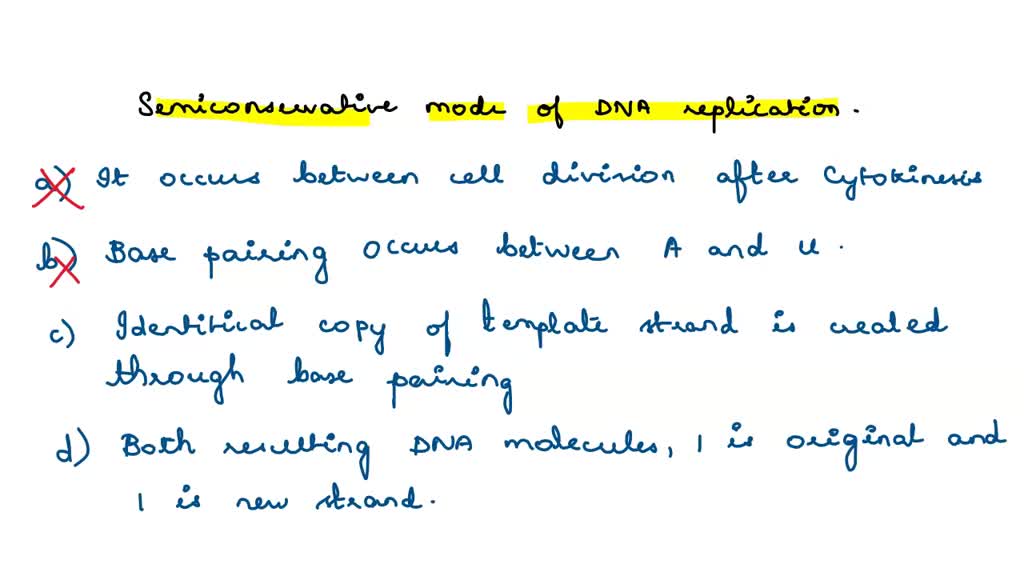 Semiconservative mode of DNA replication.
a) It occurs between cell division after Cytokinesis
b) Base pairing occurs between A and u.
c) Identitical copy of template strand is created
through base pairing
d) Both resulting DNA molecules, 1 is original and
1 is new strand.